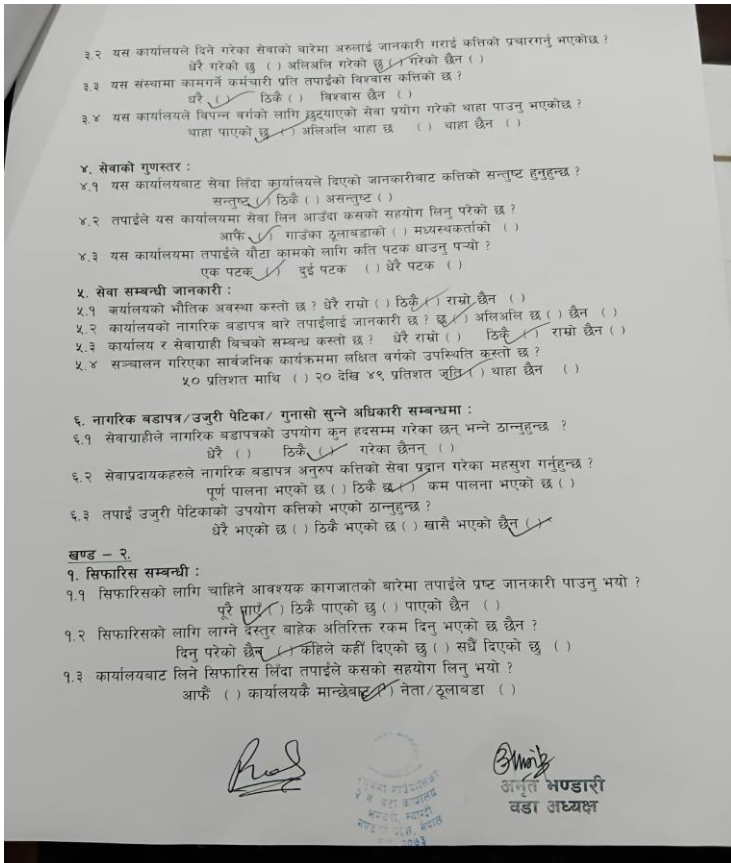 ३.२ यस कार्यालयले दिने गरेका सेवाको बारेमा अरुलाई जानकारी गराई कत्तिको प्रचारगर्नु भएकोछ ?
धेरै गरेको छु ( ) अलिअलि गरेको छु (✓) गरेको छैन ( )
३.३ यस संस्थामा कामगर्ने कर्मचारी प्रति तपाईको विश्वास कत्तिको छ ?
धेरै (✓) ठिकै ( ) विश्वास छैन ( )
३.४ यस कार्यालयले विपन्न वर्गको लागि छुट्याएको सेवा प्रयोग गरेको थाहा पाउनु भएकोछ ?
थाहा पाएको छु (✓) अलिअलि थाहा छ ( ) थाहा छैन ( )
४. सेवाको गुणस्तर :
४.१ यस कार्यालयबाट सेवा लिँदा कार्यालयले दिएको जानकारीबाट कत्तिको सन्तुष्ट हुनुहुन्छ ?
सन्तुष्ट (✓) ठिकै ( ) असन्तुष्ट ( )
४.२ तपाईले यस कार्यालयमा सेवा लिन आउँदा कसको सहयोग लिनु परेको छ ?
आफै (✓) गाउँका ठूलाबडाको ( ) मध्यस्थकर्ताको ( )
४.३ यस कार्यालयमा तपाईले यौटा कामको लागि कति पटक धाउनु पऱ्यो ?
एक पटक (✓) दुई पटक ( ) धेरै पटक ( )
५. सेवा सम्बन्धी जानकारी :
५.१ कार्यालयको भौतिक अवस्था कस्तो छ ? धेरै राम्रो ( ) ठिकै (✓) राम्रो छैन ( )
५.२ कार्यालयको नागरिक बडापत्र बारे तपाईलाई जानकारी छ ? छ (✓) अलिअलि छ ( ) छैन ( )
५.३ कार्यालय र सेवाग्राही बिचको सम्बन्ध कस्तो छ ? धेरै राम्रो ( ) ठिकै (✓) राम्रो छैन ( )
५.४ सञ्चालन गरिएका सार्वजनिक कार्यक्रममा लक्षित वर्गको उपस्थिति कस्तो छ ?
५० प्रतिशत माथि ( ) २० देखि ४९ प्रतिशत जति (✓) थाहा छैन ( )
६. नागरिक बडापत्र/उजुरी पेटिका/ गुनासो सुन्ने अधिकारी सम्बन्धमा :
६.१ सेवाग्राहीले नागरिक बडापत्रको उपयोग कुन हदसम्म गरेका छन् भन्ने ठान्नुहुन्छ ?
धेरै ( ) ठिकै (✓) गरेका छैनन् ( )
६.२ सेवाप्रदायकहरुले नागरिक बडापत्र अनुरुप कत्तिको सेवा प्रदान गरेका महसुश गर्नुहुन्छ ?
पूर्ण पालना भएको छ ( ) ठिकै छ (✓) कम पालना भएको छ ( )
६.३ तपाई उजुरी पेटिकाको उपयोग कत्तिको भएको ठान्नुहुन्छ ?
धेरै भएको छ ( ) ठिकै भएको छ ( ) खासै भएको छैन (✓)
खण्ड – २.
१. सिफारिस सम्बन्धी :
१.१ सिफारिसको लागि चाहिने आवश्यक कागजातको बारेमा तपाईले प्रष्ट जानकारी पाउनु भयो ?
पूरै पाएँ (✓) ठिकै पाएको छु ( ) पाएको छैन ( )
१.२ सिफारिसको लागि लाग्ने दस्तुर बाहेक अतिरिक्त रकम दिनु भएको छ छैन ?
दिनु परेको छैन (✓) कहिले कहीं दिएको छु ( ) सधैं दिएको छु ( )
१.३ कार्यालयबाट लिने सिफारिस लिँदा तपाईले कसको सहयोग लिनु भयो ?
आफै ( ) कार्यालयकै मान्छेबाट (✓) नेता/ठूलाबडा ( )
अमृत भण्डारी
वडा अध्यक्ष